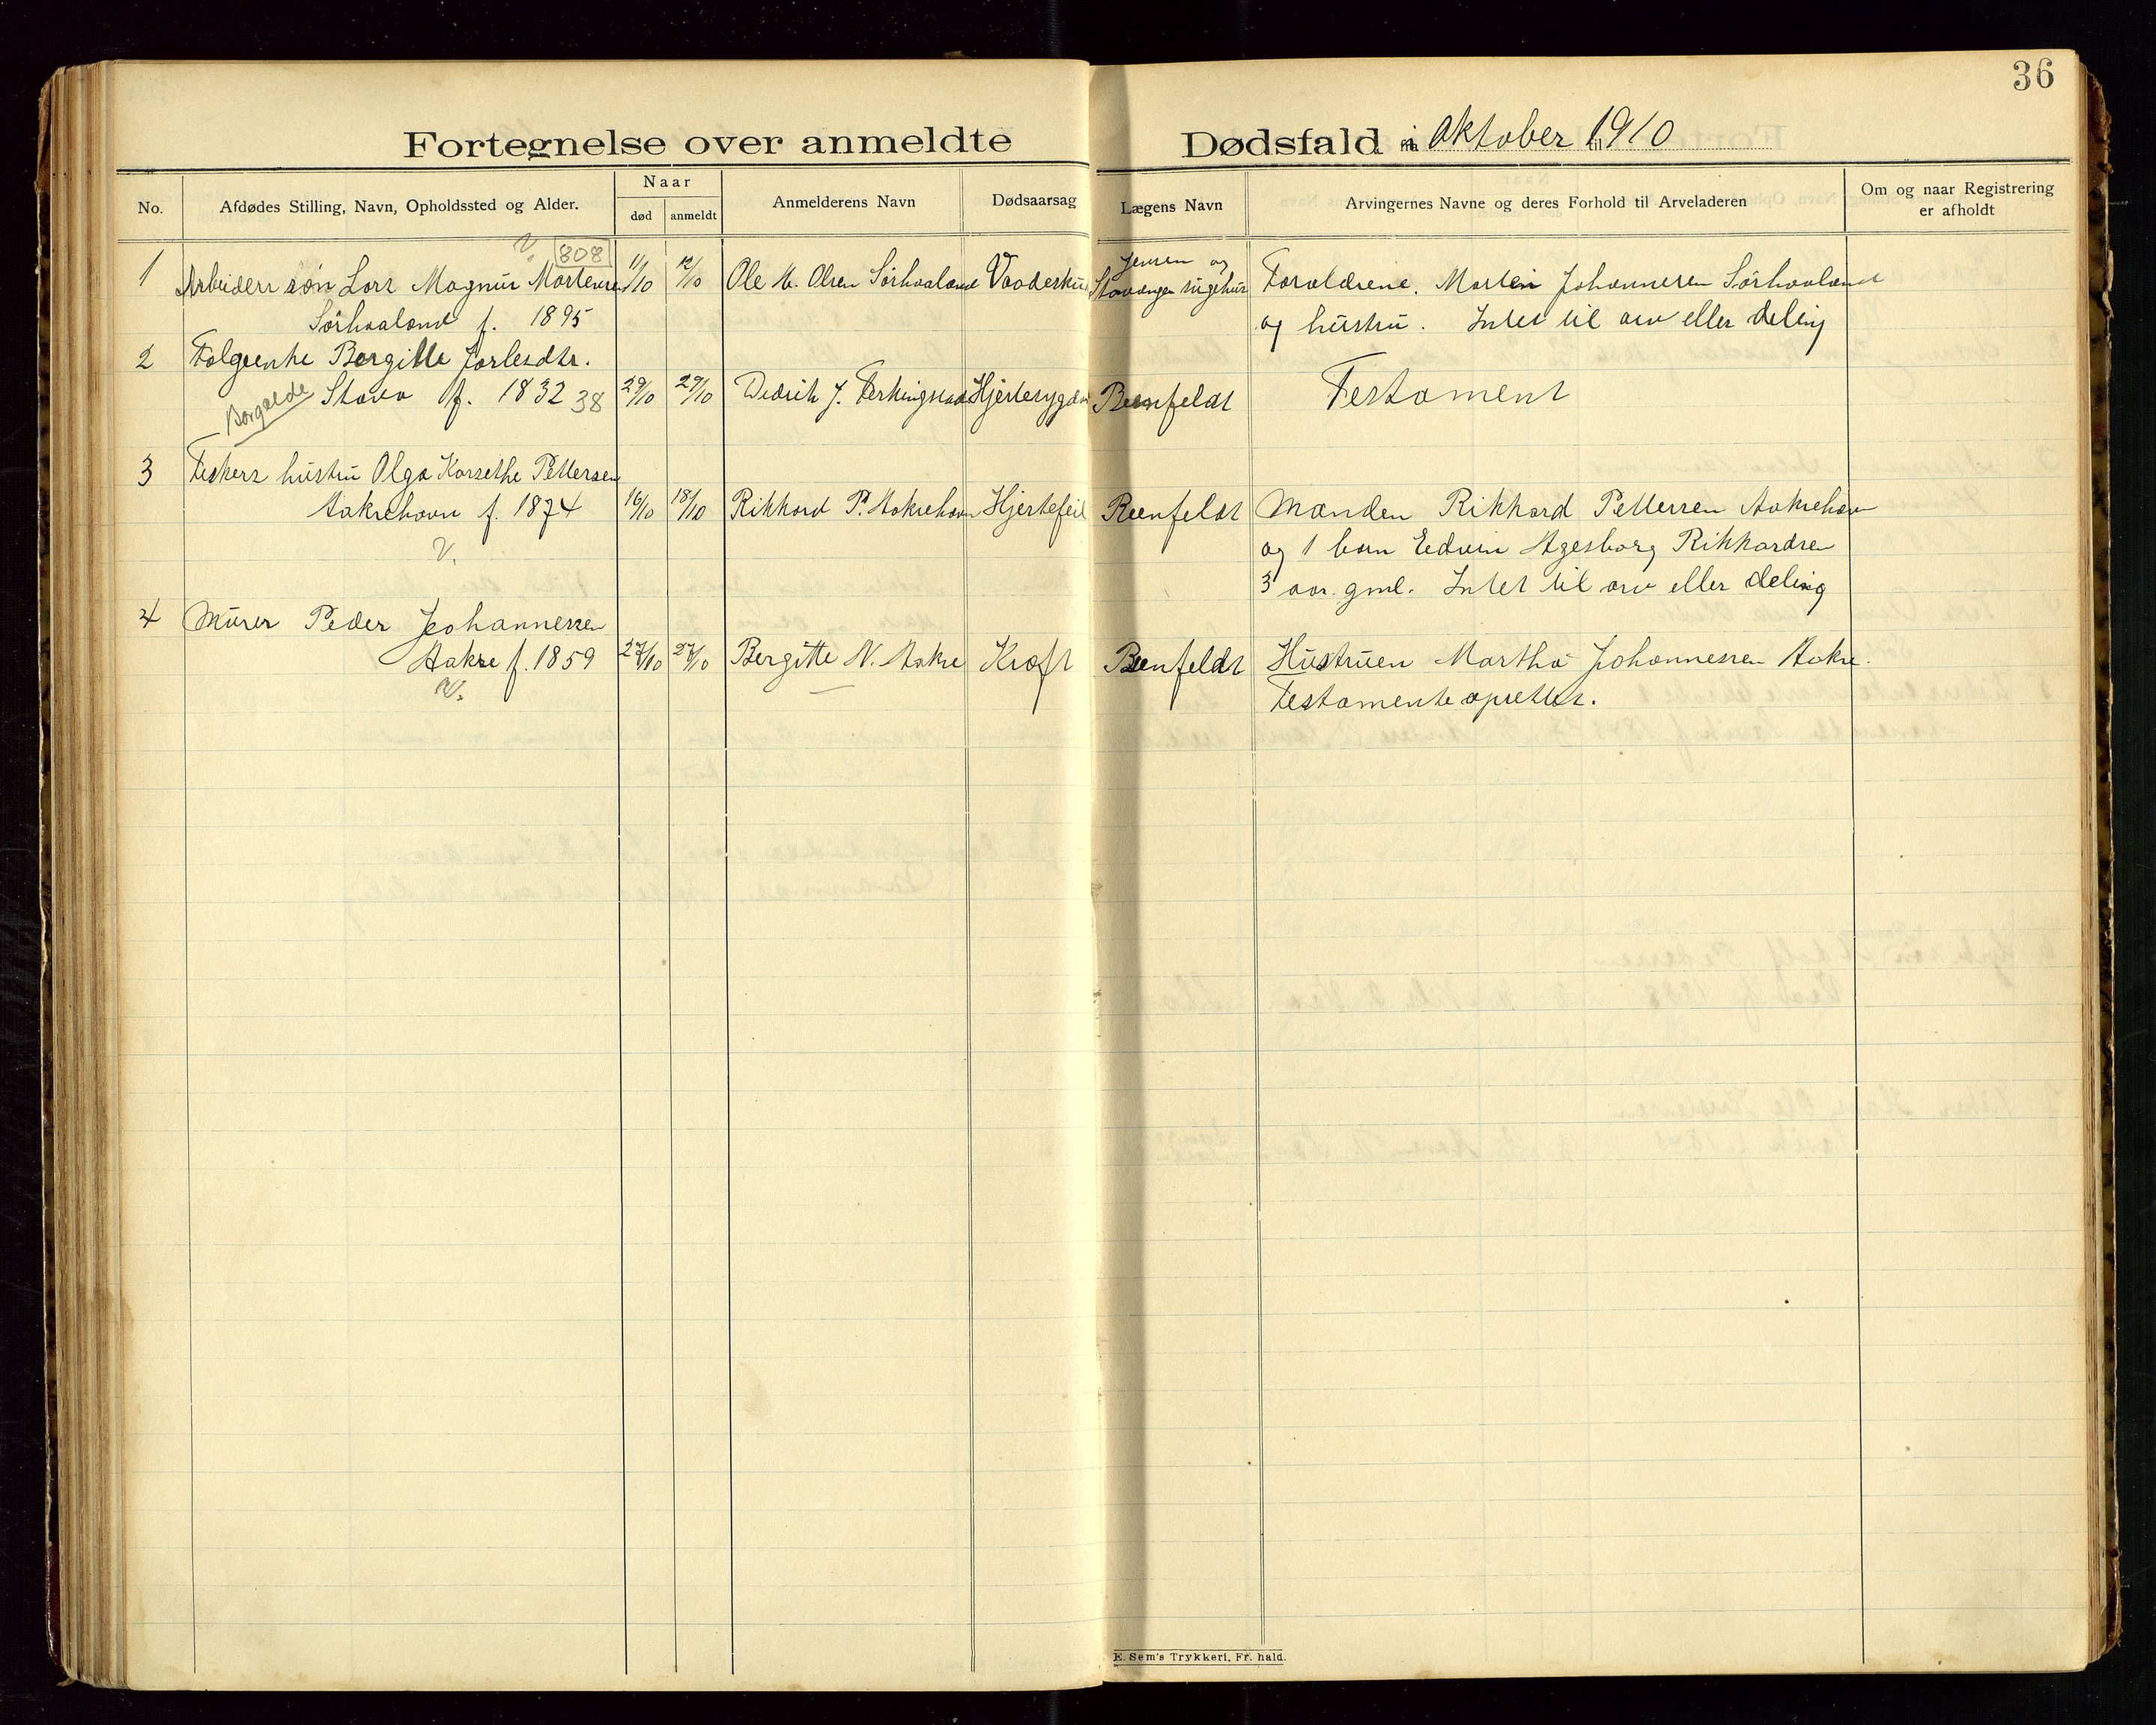 36
Fortegnelse over anmeldte Dødsfald i Oktober 1910
No.
Afdødes Stilling, Navn, Opholdssted og Alder.
Naar
død
anmeldt
Anmelderens Navn
Dødsaarsag
Lægens Navn
Arvingernes Navne og deres Forhold til Arveladeren
Om og naar Registrering
er afholdt
V. 808
1 Arbeiders søn Lars Magnus Mortensen 11/10 12/10 Ole M. Olsen Sörhaaland Vaadeskud Jensen og Stavanger sygehus Foraldrene. Morten Johannesen Sörhaaland
Sörhaaland f. 1895 og hustru. Intet til arv eller deling
2 Folgeenke Bergitte Jarlesdtr.
Borgalde Stava f. 1832 38 29/10 29/10 Didrik J. Ferkingstad Hjertesygdom Testament
3 Fiskers hustru Olga Karsethe Pettersen
Aakrehavn f. 1874 16/10 18/10 Rikkard P. Aakrehavn Hjertefeil Manden Rikkard Pettersen Aakrehavn
V. og 1 barn Edvin Rikkardsen
3 aar gml. Intet til arv eller deling
4 Murer Peder Johannessen
Aakre f. 1859 27/10 27/10 Bergitte N. Aakre Kræft Hustruen Martha Johannessen Aakre.
V. Testamente oprettet.
E. Sem's Trykkeri, Fr. hald.